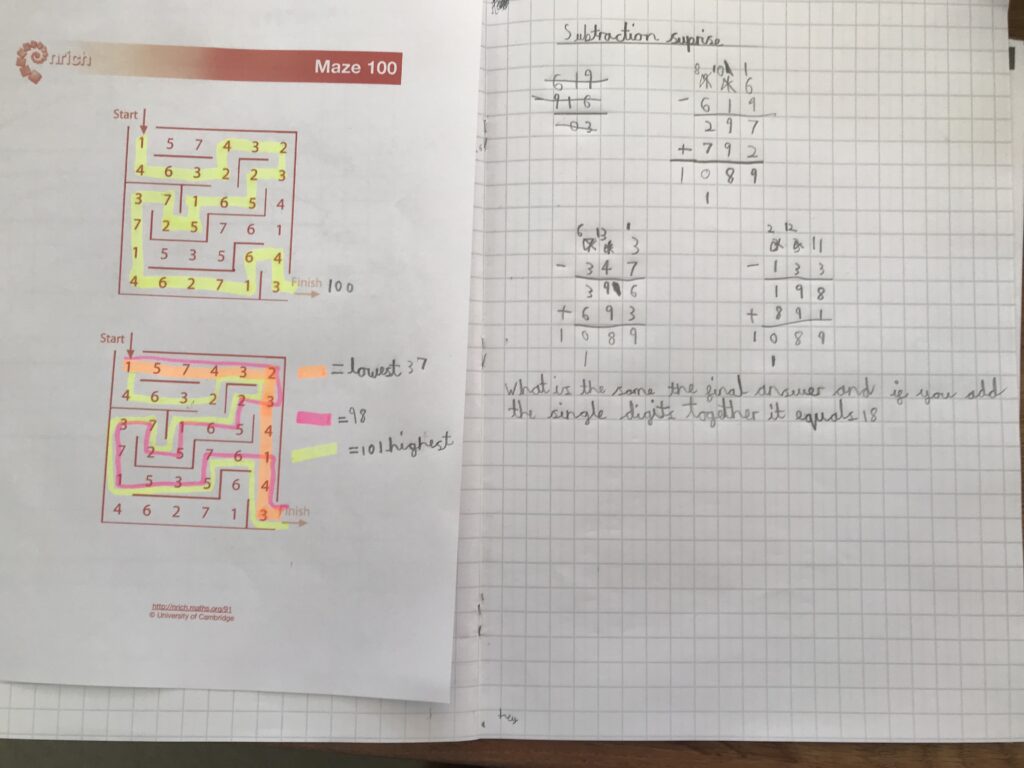 enrich
Maze 100
Start
1 5 7 4 3 2
4 6 3 2 2 3
3 7 1 6 5 4
7 2 5 7 6 1
1 5 3 5 6 4
4 6 2 7 1 3 Finish 100
Start
1 5 7 4 3 2 = lowest 37
4 6 3 2 2 3
3 7 1 6 5 4 = 98
7 2 5 7 6 1 = 101 highest
1 5 3 5 6 4
4 6 2 7 1 3 Finish
http://nrich.maths.org/91
© University of Cambridge
Subtraction suprise
6 1 9
- 9 1 6
- 0 3
8 10 1
6
- 6 1 9
2 9 7
+ 7 9 2
1 0 8 9
1
6 13 1
3
- 3 4 7
3 9 6
+ 6 9 3
1 0 8 9
1
2 12
11
- 1 3 3
1 9 8
+ 8 9 1
1 0 8 9
1
what is the same the final answer and if you add
the single digits together it equals 18
hey